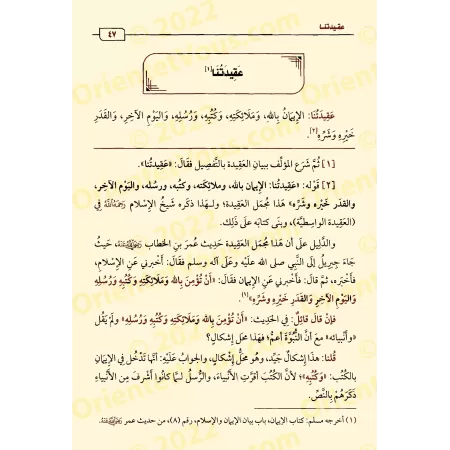 عقيدتنا
٤٧
عَقِيدَتُنَا[١]
عَقِيدَتُنَا: الإِيمَانُ بِاللهِ، وَمَلَائِكَتِهِ، وَكُتُبِهِ، وَرُسُلِهِ، وَاليَوْمِ الآخِرِ، وَالقَدَرِ
خَيْرِهِ وَشَرِّهِ[٢].
[١] ثُمَّ شَرَع المؤلِّف ببيانِ العَقِيدة بالتَّفْصِيل فقَالَ: «عَقِيدتُنا».
[٢] قَوْله: «عَقِيدتُنا: الإِيمان بالله، وملائِكَته، وكتُبه، ورسُله، واليَوْم الآخِر،
والقدَر خَيْره وشَرِّه» هَذا مُجمَل العَقِيدة؛ ولـهَذا ذكَره شَيخُ الإِسْلام رَحِمَهُ اللَّهُ فِي
(العَقِيدة الواسِطيَّة)، وبنَى كتابَه عَلَى ذَلك.
والدَّلِيل عَلَى أن هَذا مُجمَل العَقِيدة حَدِيث عُمرَ بنِ الخطاب رَضِيَ اللَّهُ عَنْهُ، حَيثُ
جَاءَ جِبرِيلُ إلَى النَّبِي صلى الله علَيْه وعَلَى آلَه وسلم فقَالَ: أَخْبرنِي عَنِ الإِسْلامِ،
فأَخْبَره، ثمَّ قالَ: فأَخْبرنِي عَنِ الإِيمانِ فقَالَ: «أَنْ تُؤْمِنَ بِالله وَمَلَائِكَتِهِ وَكُتُبِهِ وَرُسُلِهِ
وَاليَوْمِ الآخِرِ وَالقَدَرِ خَيْرِهِ وشَرِّهِ»(١).
فإِنْ قالَ قائِلٌ: فِي الحَدِيث: «أَنْ تُؤْمِنَ بِالله وَمَلَائِكَتِهِ وَكُتُبِهِ وَرُسُلِهِ» ولَم يَقُل
«وأَنْبيائه» معَ أنَّ النُّبُوَّة أعَمُّ؛ فهَذا محَل إِشكَالٍ؟
قُلنا: هَذا إِشكَالٌ جَيِّد، وهُو محَلُّ إِشْكالٍ، والجوابُ علَيْه: أنَّها تَدْخُل فِي الإِيمَان
بالكُتُب: «وَكُتُبِهِ»؛ لأنَّ الكُتُبَ أقرَّتِ الأَنبيَاءَ، والرُّسلُ لـمَّا كانُوا أَشْرف مِن الأَنْبياءِ
ذكَرَهُمْ بِالنَّصِّ.
(١) أخرجه مسلم: كتاب الإيمان، باب بيان الإيمان والإسلام، رقم (٨)، من حديث عمر رَضِيَ اللَّهُ عَنْهُ.
© 2022
OrientetVous.com